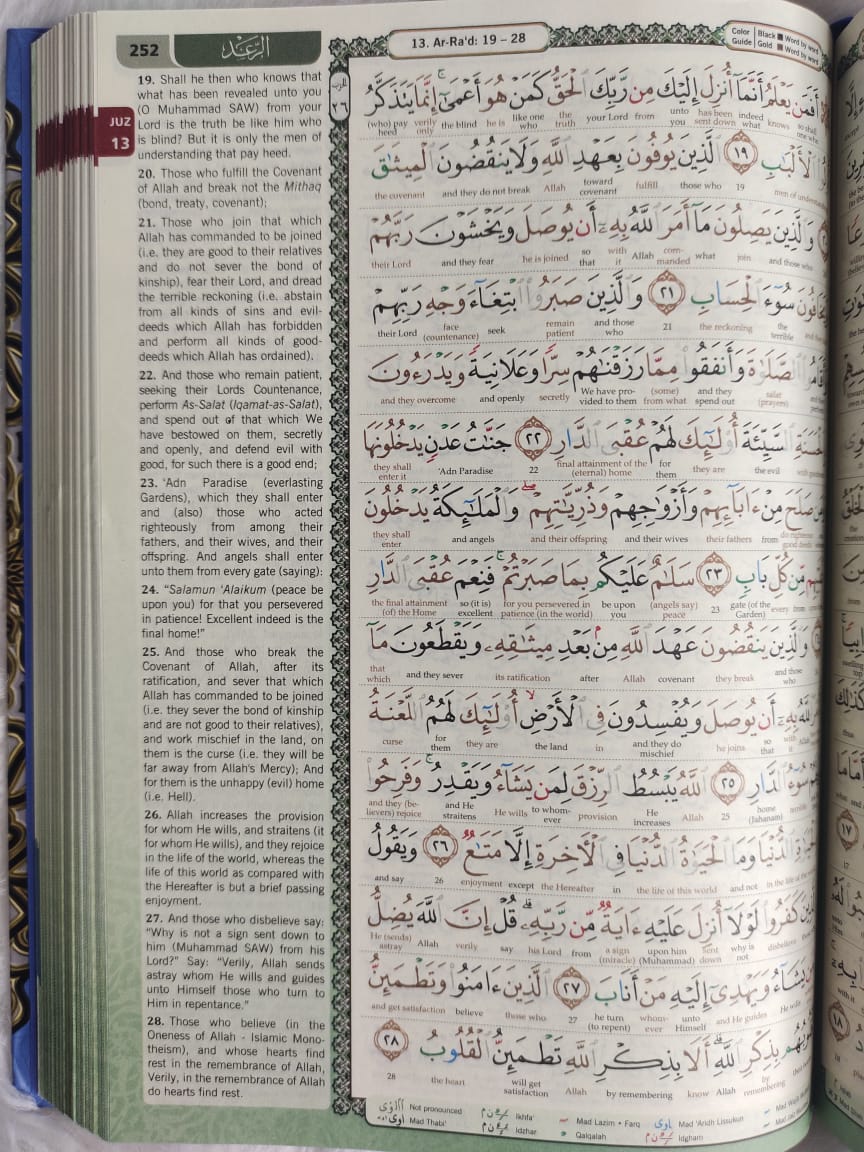 252
الرعد
13. Ar-Ra'd: 19 – 28
Color Guide | Black ■ Word by word
| Gold ■ Word by word
JUZ
13
19. Shall he then who knows that
what has been revealed unto you
(O Muhammad SAW) from your
Lord is the truth be like him who
is blind? But it is only the men of
understanding that pay heed.
20. Those who fulfill the Covenant
of Allah and break not the Mithaq
(bond, treaty, covenant);
21. Those who join that which
Allah has commanded to be joined
(i.e. they are good to their relatives
and do not sever the bond of
kinship), fear their Lord, and dread
the terrible reckoning (i.e. abstain
from all kinds of sins and evil-
deeds which Allah has forbidden
and perform all kinds of good-
deeds which Allah has ordained).
22. And those who remain patient,
seeking their Lords Countenance,
perform As-Salat (Iqamat-as-Salat),
and spend out of that which We
have bestowed on them, secretly
and openly, and defend evil with
good, for such there is a good end;
23. 'Adn Paradise (everlasting
Gardens), which they shall enter
and (also) those who acted
righteously from among their
fathers, and their wives, and their
offspring. And angels shall enter
unto them from every gate (saying):
24. "Salamun 'Alaikum (peace be
upon you) for that you persevered
in patience! Excellent indeed is the
final home!"
25. And those who break the
Covenant of Allah, after its
ratification, and sever that which
Allah has commanded to be joined
(i.e. they sever the bond of kinship
and are not good to their relatives),
and work mischief in the land, on
them is the curse (i.e. they will be
far away from Allah's Mercy); And
for them is the unhappy (evil) home
(i.e. Hell).
26. Allah increases the provision
for whom He wills, and straitens (it
for whom He wills), and they rejoice
in the life of the world, whereas the
life of this world as compared with
the Hereafter is but a brief passing
enjoyment.
27. And those who disbelieve say:
"Why is not a sign sent down to
him (Muhammad SAW) from his
Lord?" Say: "Verily, Allah sends
astray whom He wills and guides
unto Himself those who turn to
Him in repentance."
28. Those who believe (in the
Oneness of Allah - Islamic Mono-
theism), and whose hearts find
rest in the remembrance of Allah,
Verily, in the remembrance of Allah
do hearts find rest.
أَفَمَن يَعْلَمُ أَنَّمَآ أُنزِلَ إِلَيْكَ مِن رَّبِّكَ ٱلْحَقُّ كَمَنْ هُوَ أَعْمَىٰٓ ۚ إِنَّمَا يَتَذَكَّرُ
(who) pay heed verily only the blind he is like one who the truth your Lord from unto you has been sent down indeed what knows
ٱلْأَلْبَٰبِ ١٩ ٱلَّذِينَ يُوفُونَ بِعَهْدِ ٱللَّهِ وَلَا يَنقُضُونَ ٱلْمِيثَٰقَ
the covenant and they do not break Allah toward covenant fulfill those who 19 men of
وَٱلَّذِينَ يَصِلُونَ مَآ أَمَرَ ٱللَّهُ بِهِۦٓ أَن يُوصَلَ وَيَخْشَوْنَ رَبَّهُمْ
their Lord and they fear he is joined so that with it Allah com-manded what join and those who
سُوٓءَ ٱلْحِسَابِ ٢١ وَٱلَّذِينَ صَبَرُوا۟ ٱبْتِغَآءَ وَجْهِ رَبِّهِمْ
their Lord face (countenance) seek remain patient and those who 21 the reckoning the terrible
ٱلصَّلَوٰةَ وَأَنفَقُوا۟ مِمَّا رَزَقْنَٰهُمْ سِرًّا وَعَلَانِيَةً وَيَدْرَءُونَ
and they overcome and openly secretly We have pro-vided to them (some) from what and they spend out salat (prayers)
ٱلسَّيِّئَةَ أُو۟لَٰٓئِكَ لَهُمْ عُقْبَى ٱلدَّارِ ٢٢ جَنَّٰتُ عَدْنٍ يَدْخُلُونَهَا
they shall enter it 'Adn Paradise 22 final attainment of the (eternal) home for them they are the evil
صَلَحَ مِنْ ءَابَآئِهِمْ وَأَزْوَٰجِهِمْ وَذُرِّيَّٰتِهِمْ ۖ وَٱلْمَلَٰٓئِكَةُ يَدْخُلُونَ
they shall enter and angels and their offspring and their wives their fathers from
مِّن كُلِّ بَابٍ ٢٣ سَلَٰمٌ عَلَيْكُم بِمَا صَبَرْتُمْ ۚ فَنِعْمَ عُقْبَى ٱلدَّارِ
the final attainment (of) the Home so (it is) excellent for you persevered in patience (in the world) be upon you (angels say) peace 23 gate (of the Garden) every from
وَٱلَّذِينَ يَنقُضُونَ عَهْدَ ٱللَّهِ مِنۢ بَعْدِ مِيثَٰقِهِۦ وَيَقْطَعُونَ مَآ
that which and they sever its ratification after Allah covenant they break and those who
ٱللَّهُ بِهِۦٓ أَن يُوصَلَ وَيُفْسِدُونَ فِى ٱلْأَرْضِ ۙ أُو۟لَٰٓئِكَ لَهُمُ ٱللَّعْنَةُ
curse for them they are the land in and they do mischief he joins so that with it
سُوٓءُ ٱلدَّارِ ٢٥ ٱللَّهُ يَبْسُطُ ٱلرِّزْقَ لِمَن يَشَآءُ وَيَقْدِرُ ۚ وَفَرِحُوا۟
and they (be-lievers) rejoice and He straitens He wills to whom-ever provision He increases Allah 25 home (Jahanam)
ٱلدُّنْيَا وَمَا ٱلْحَيَوٰةُ ٱلدُّنْيَا فِى ٱلْأَخِرَةِ إِلَّا مَتَٰعٌ ٢٦ وَيَقُولُ
and say 26 enjoyment except the Hereafter in the life of this world and not in the life of
كَفَرُوا۟ لَوْلَآ أُنزِلَ عَلَيْهِ ءَايَةٌ مِّن رَّبِّهِۦ ۗ قُلْ إِنَّ ٱللَّهَ يُضِلُّ
He (sends) astray Allah verily say his Lord from a sign (miracle) upon him (Muhammad) sent down why is not
يَشَآءُ وَيَهْدِىٓ إِلَيْهِ مَنْ أَنَابَ ٢٧ ٱلَّذِينَ ءَامَنُوا۟ وَتَطْمَئِنُّ
and get satisfaction believe those who 27 he turn (to repent) whom-ever unto Himself and He guides He wills
بِذِكْرِ ٱللَّهِ ۗ أَلَا بِذِكْرِ ٱللَّهِ تَطْمَئِنُّ ٱلْقُلُوبُ ٢٨
28 the heart will get satisfaction Allah by remembering know Allah by remembering
Not pronounced
Mad Thabi'
Ikhfa'
Idzhar
Mad Lazim • Farq
Qalqalah
Mad 'Aridh Lissukun
Idgham